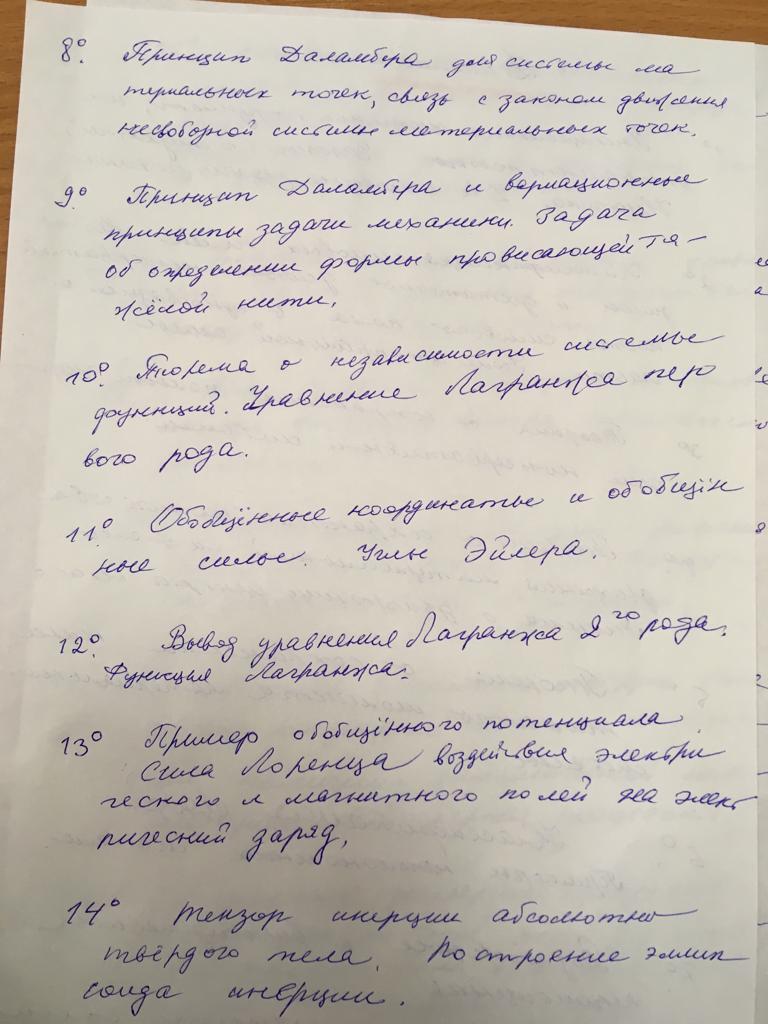 8º. Принцип Даламбера для системы ма
териальных точек, связь с законом движения
несвободной системы материальных точек.
9º Принцип Даламбера и вариационные
принципы задачи механики. Задача
об определении формы провисающей тя-
жёлой нити.
10º. Теорема о независимости системы
функций. Уравнение Лагранжа пер
вого рода.
11º. Обобщённые координаты и обобщён
ные силы. Углы Эйлера.
12º. Вывод уравнения Лагранжа 2го рода.
Функция Лагранжа.
13º Пример обобщённого потенциала
Сила Лоренца воздействия электри
ческого и магнитного полей на элект
рический заряд.
14º Тензор инерции абсолютно
твёрдого тела. Построение эллип
соида инерции.